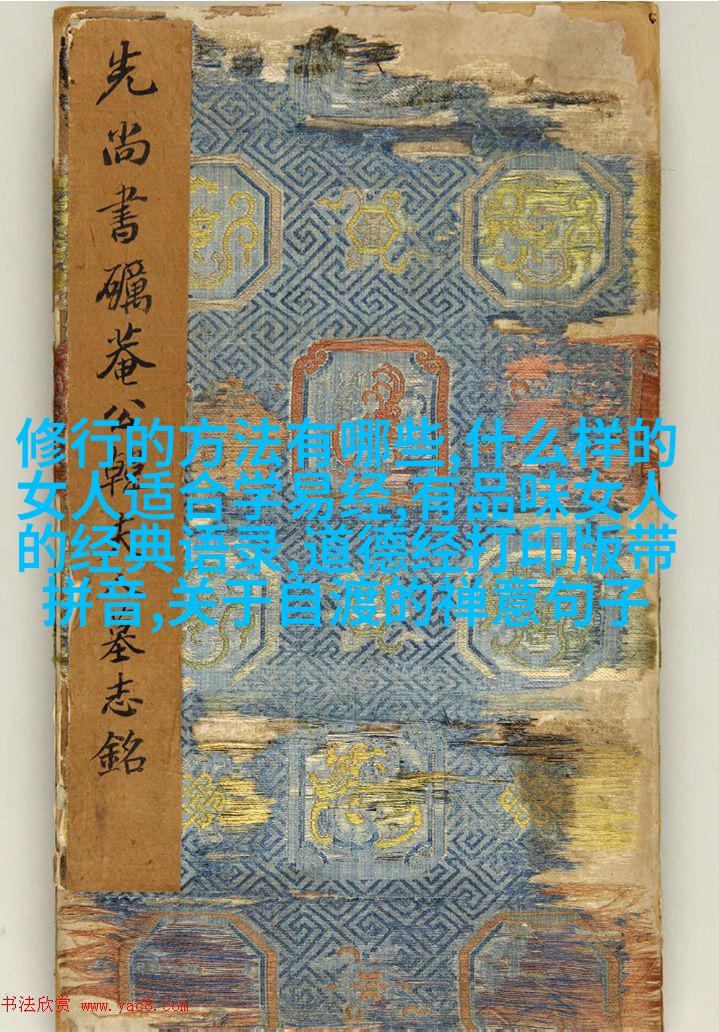 先尚書礪菴公韓夫墓志銘
修行的方法有哪些,什么样的
女人适合学易经,有品味女人
的经典语录,道德经打印版带
拼音,关于自渡的禅意句子
书法欣赏 www.yac8.com